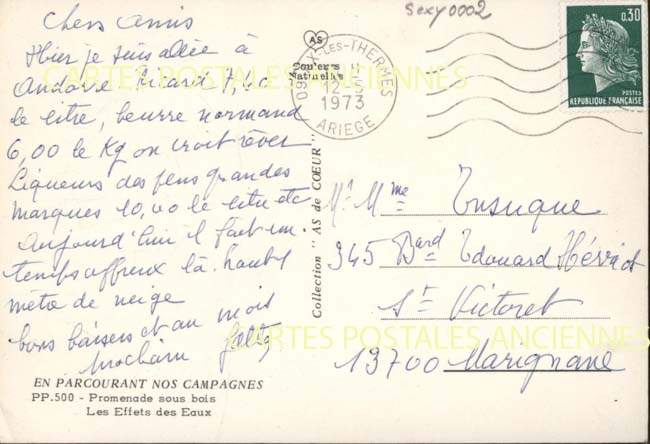 Chers Amis
Hier je suis allée à
Andorre Ricard 7,40
le litre, beurre normand
6,00 le Kg on croit rêver
Liqueurs des plus grandes
marques 10,00 le litre etc
Aujourd'hui il fait un
temps affreux là haut 1
mètre de neige
bons baisers et au mois
prochain
EN PARCOURANT NOS CAMPAGNES
PP.500 - Promenade sous bois
Les Effets des Eaux
Collection "AS de CŒUR"
AS
Couleurs
Naturelles
sexy0002
LES-THERMES
12-5
1973
ARIEGE
0,30
POSTES
REPUBLIQUE FRANÇAISE
Mr Mme
345 Bard Edouard Hérriot
St Victoret
13700 Marignane
CARTES POSTALES ANCIENNES
CARTES POSTALES ANCIENNES